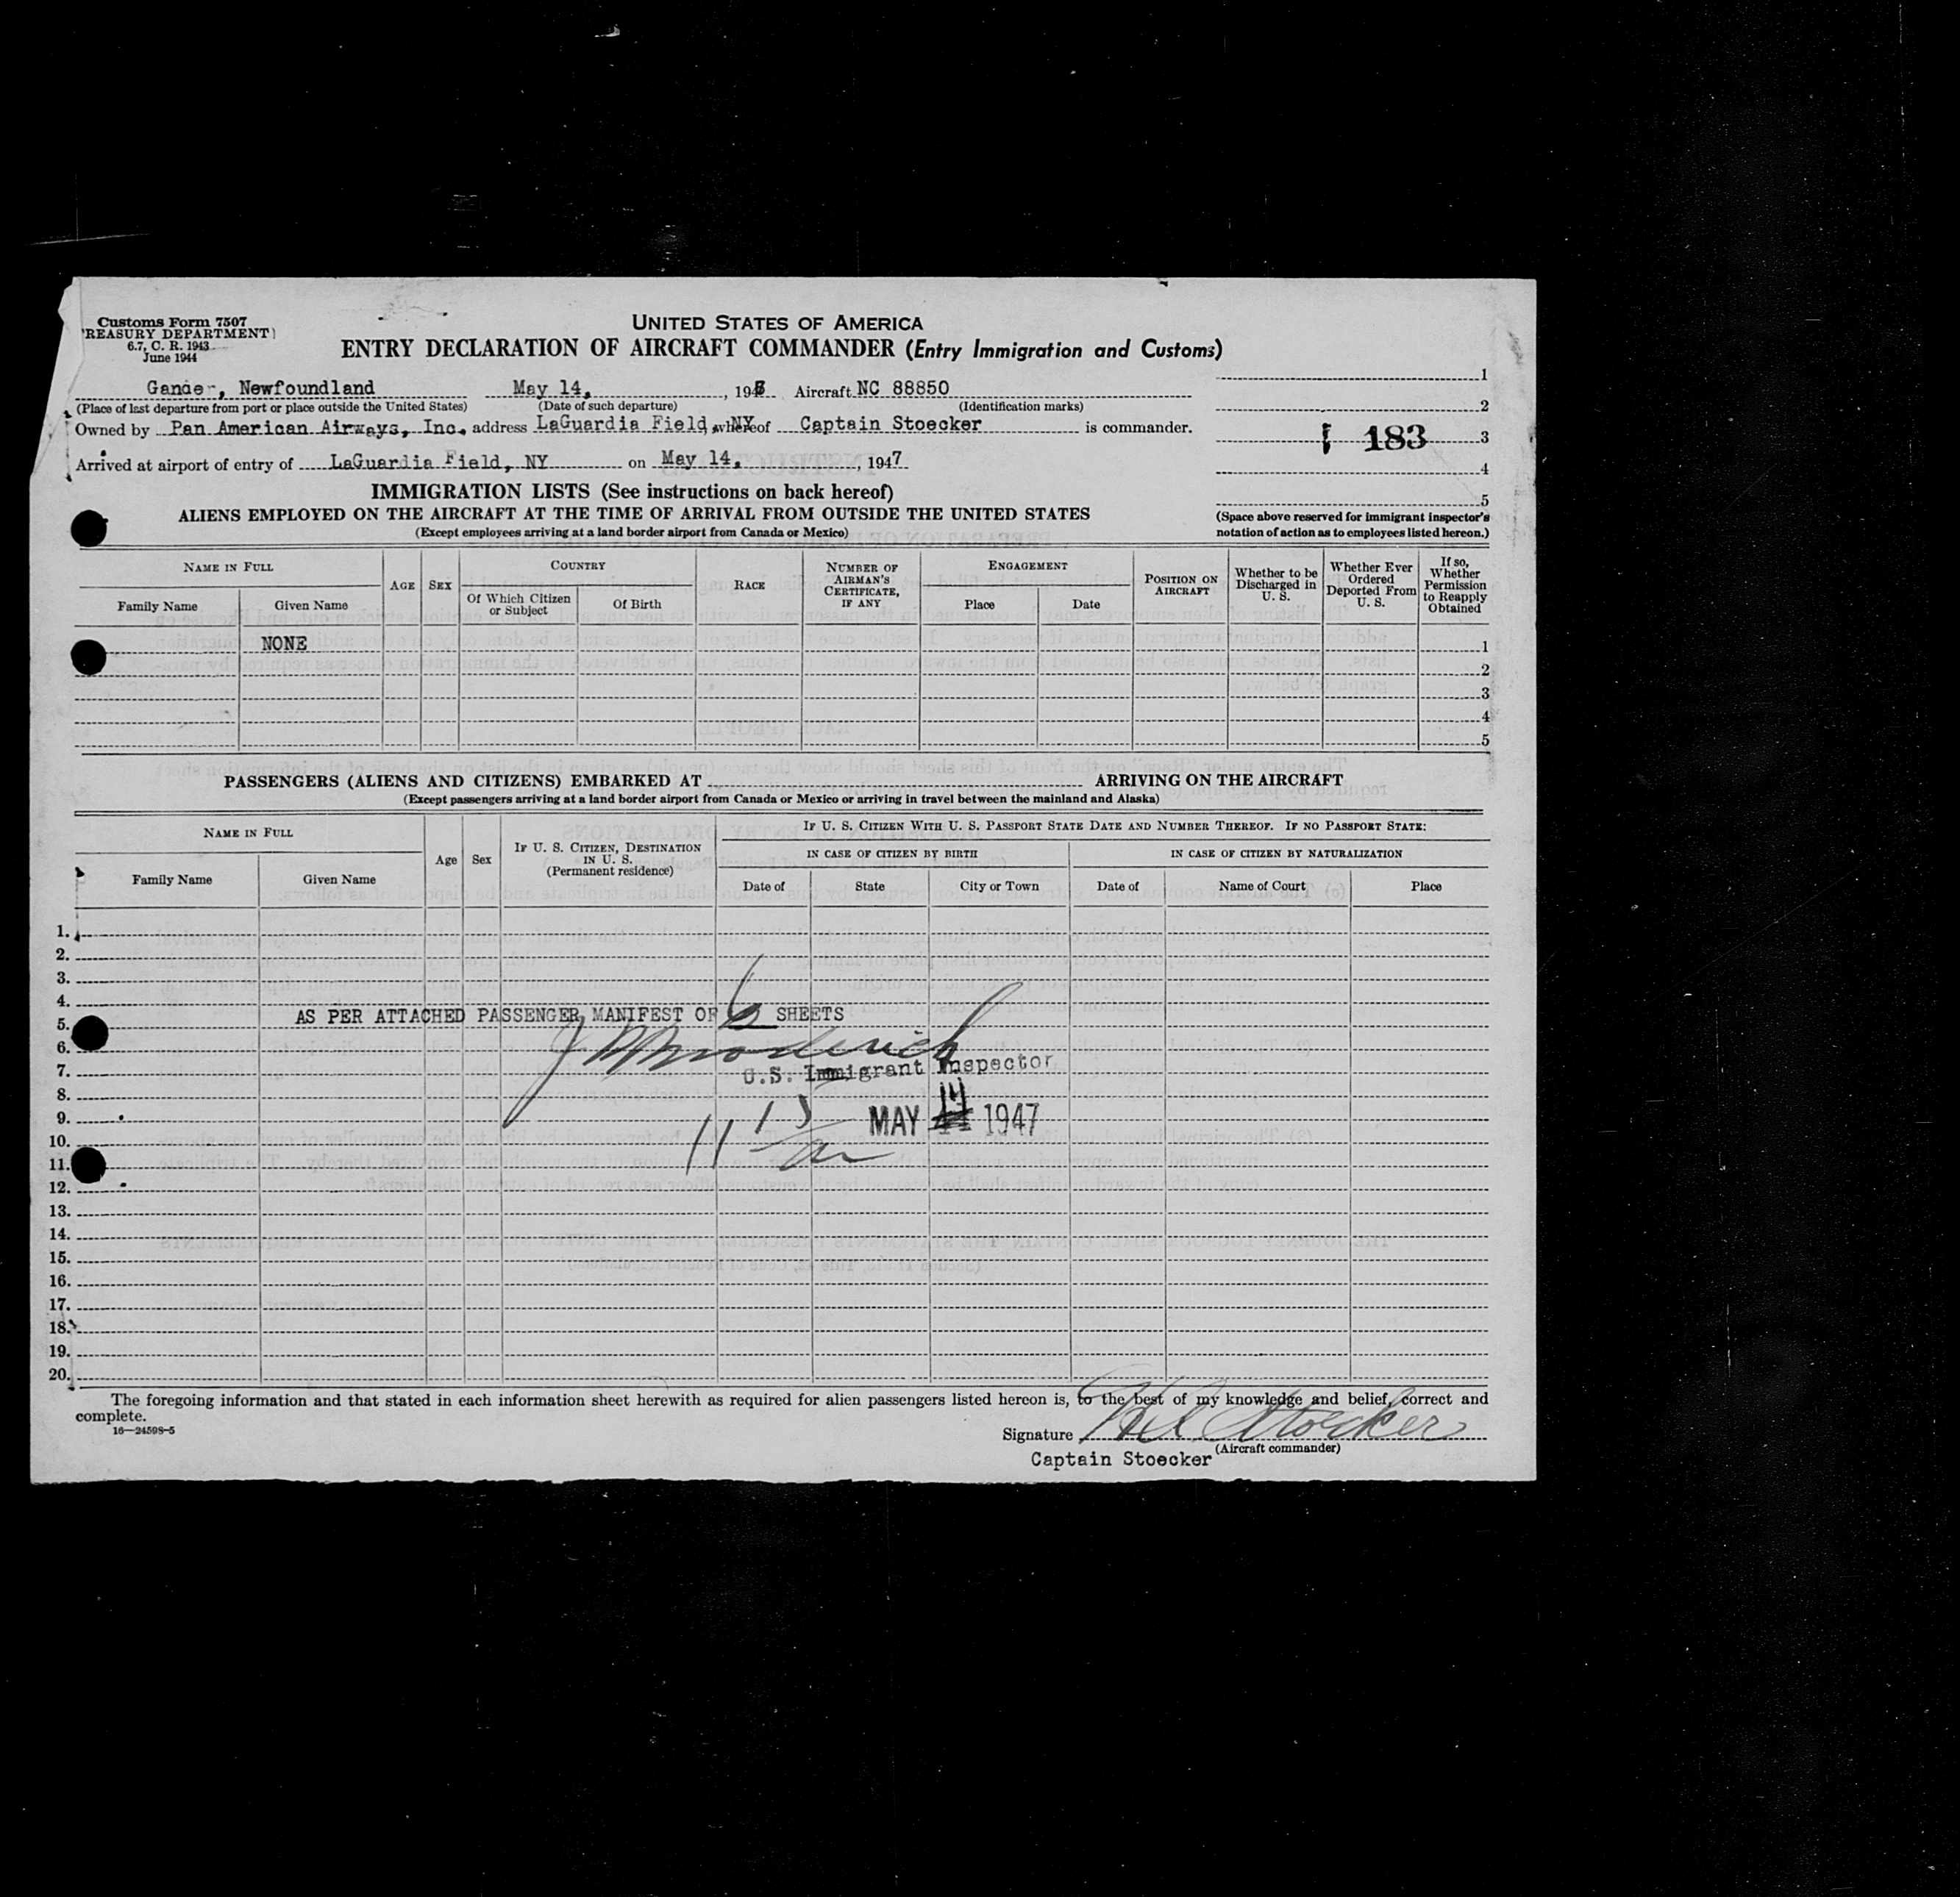 Customs Form 7507
TREASURY DEPARTMENT
6.7, C. R. 1943
June 1944
UNITED STATES OF AMERICA
ENTRY DECLARATION OF AIRCRAFT COMMANDER (Entry Immigration and Customs)
Gander, Newfoundland May 14, , 194 Aircraft NC 88850
(Place of last departure from port or place outside the United States) (Date of such departure) (Identification marks)
Owned by Pan American Airways, Inc. address LaGuardia Field, NY whereof Captain Stoecker is commander.
Arrived at airport of entry of LaGuardia Field, NY on May 14, , 1947
1
2
183 3
4
5
(Space above reserved for immigrant inspector's notation of action as to employees listed hereon.)
IMMIGRATION LISTS (See instructions on back hereof)
ALIENS EMPLOYED ON THE AIRCRAFT AT THE TIME OF ARRIVAL FROM OUTSIDE THE UNITED STATES
(Except employees arriving at a land border airport from Canada or Mexico)
NAME IN FULL AGE SEX COUNTRY RACE NUMBER OF AIRMAN'S CERTIFICATE, IF ANY ENGAGEMENT POSITION ON AIRCRAFT Whether to be Discharged in U. S. Whether Ever Ordered Deported From U. S. If so, Whether Permission to Reapply Obtained
Family Name Given Name Of Which Citizen or Subject Of Birth Place Date
NONE 1
2
3
4
5
PASSENGERS (ALIENS AND CITIZENS) EMBARKED AT ARRIVING ON THE AIRCRAFT
(Except passengers arriving at a land border airport from Canada or Mexico or arriving in travel between the mainland and Alaska)
NAME IN FULL Age Sex IF U. S. CITIZEN, DESTINATION IN U. S. (Permanent residence) IF U. S. CITIZEN WITH U. S. PASSPORT STATE DATE AND NUMBER THEREOF. IF NO PASSPORT STATE:
IN CASE OF CITIZEN BY BIRTH IN CASE OF CITIZEN BY NATURALIZATION
Family Name Given Name Date of State City or Town Date of Name of Court Place
1.
2.
3.
4.
AS PER ATTACHED PASSENGER MANIFEST OF 6 SHEETS
5.
6.
7.
U.S. Immigrant Inspector
8.
9.
MAY 14 1947
10.
11.
12.
13.
14.
15.
16.
17.
18.
19.
20.
The foregoing information and that stated in each information sheet herewith as required for alien passengers listed hereon is, to the best of my knowledge and belief, correct and
complete.
16—24598-5
Signature Stoecker
(Aircraft commander)
Captain Stoecker